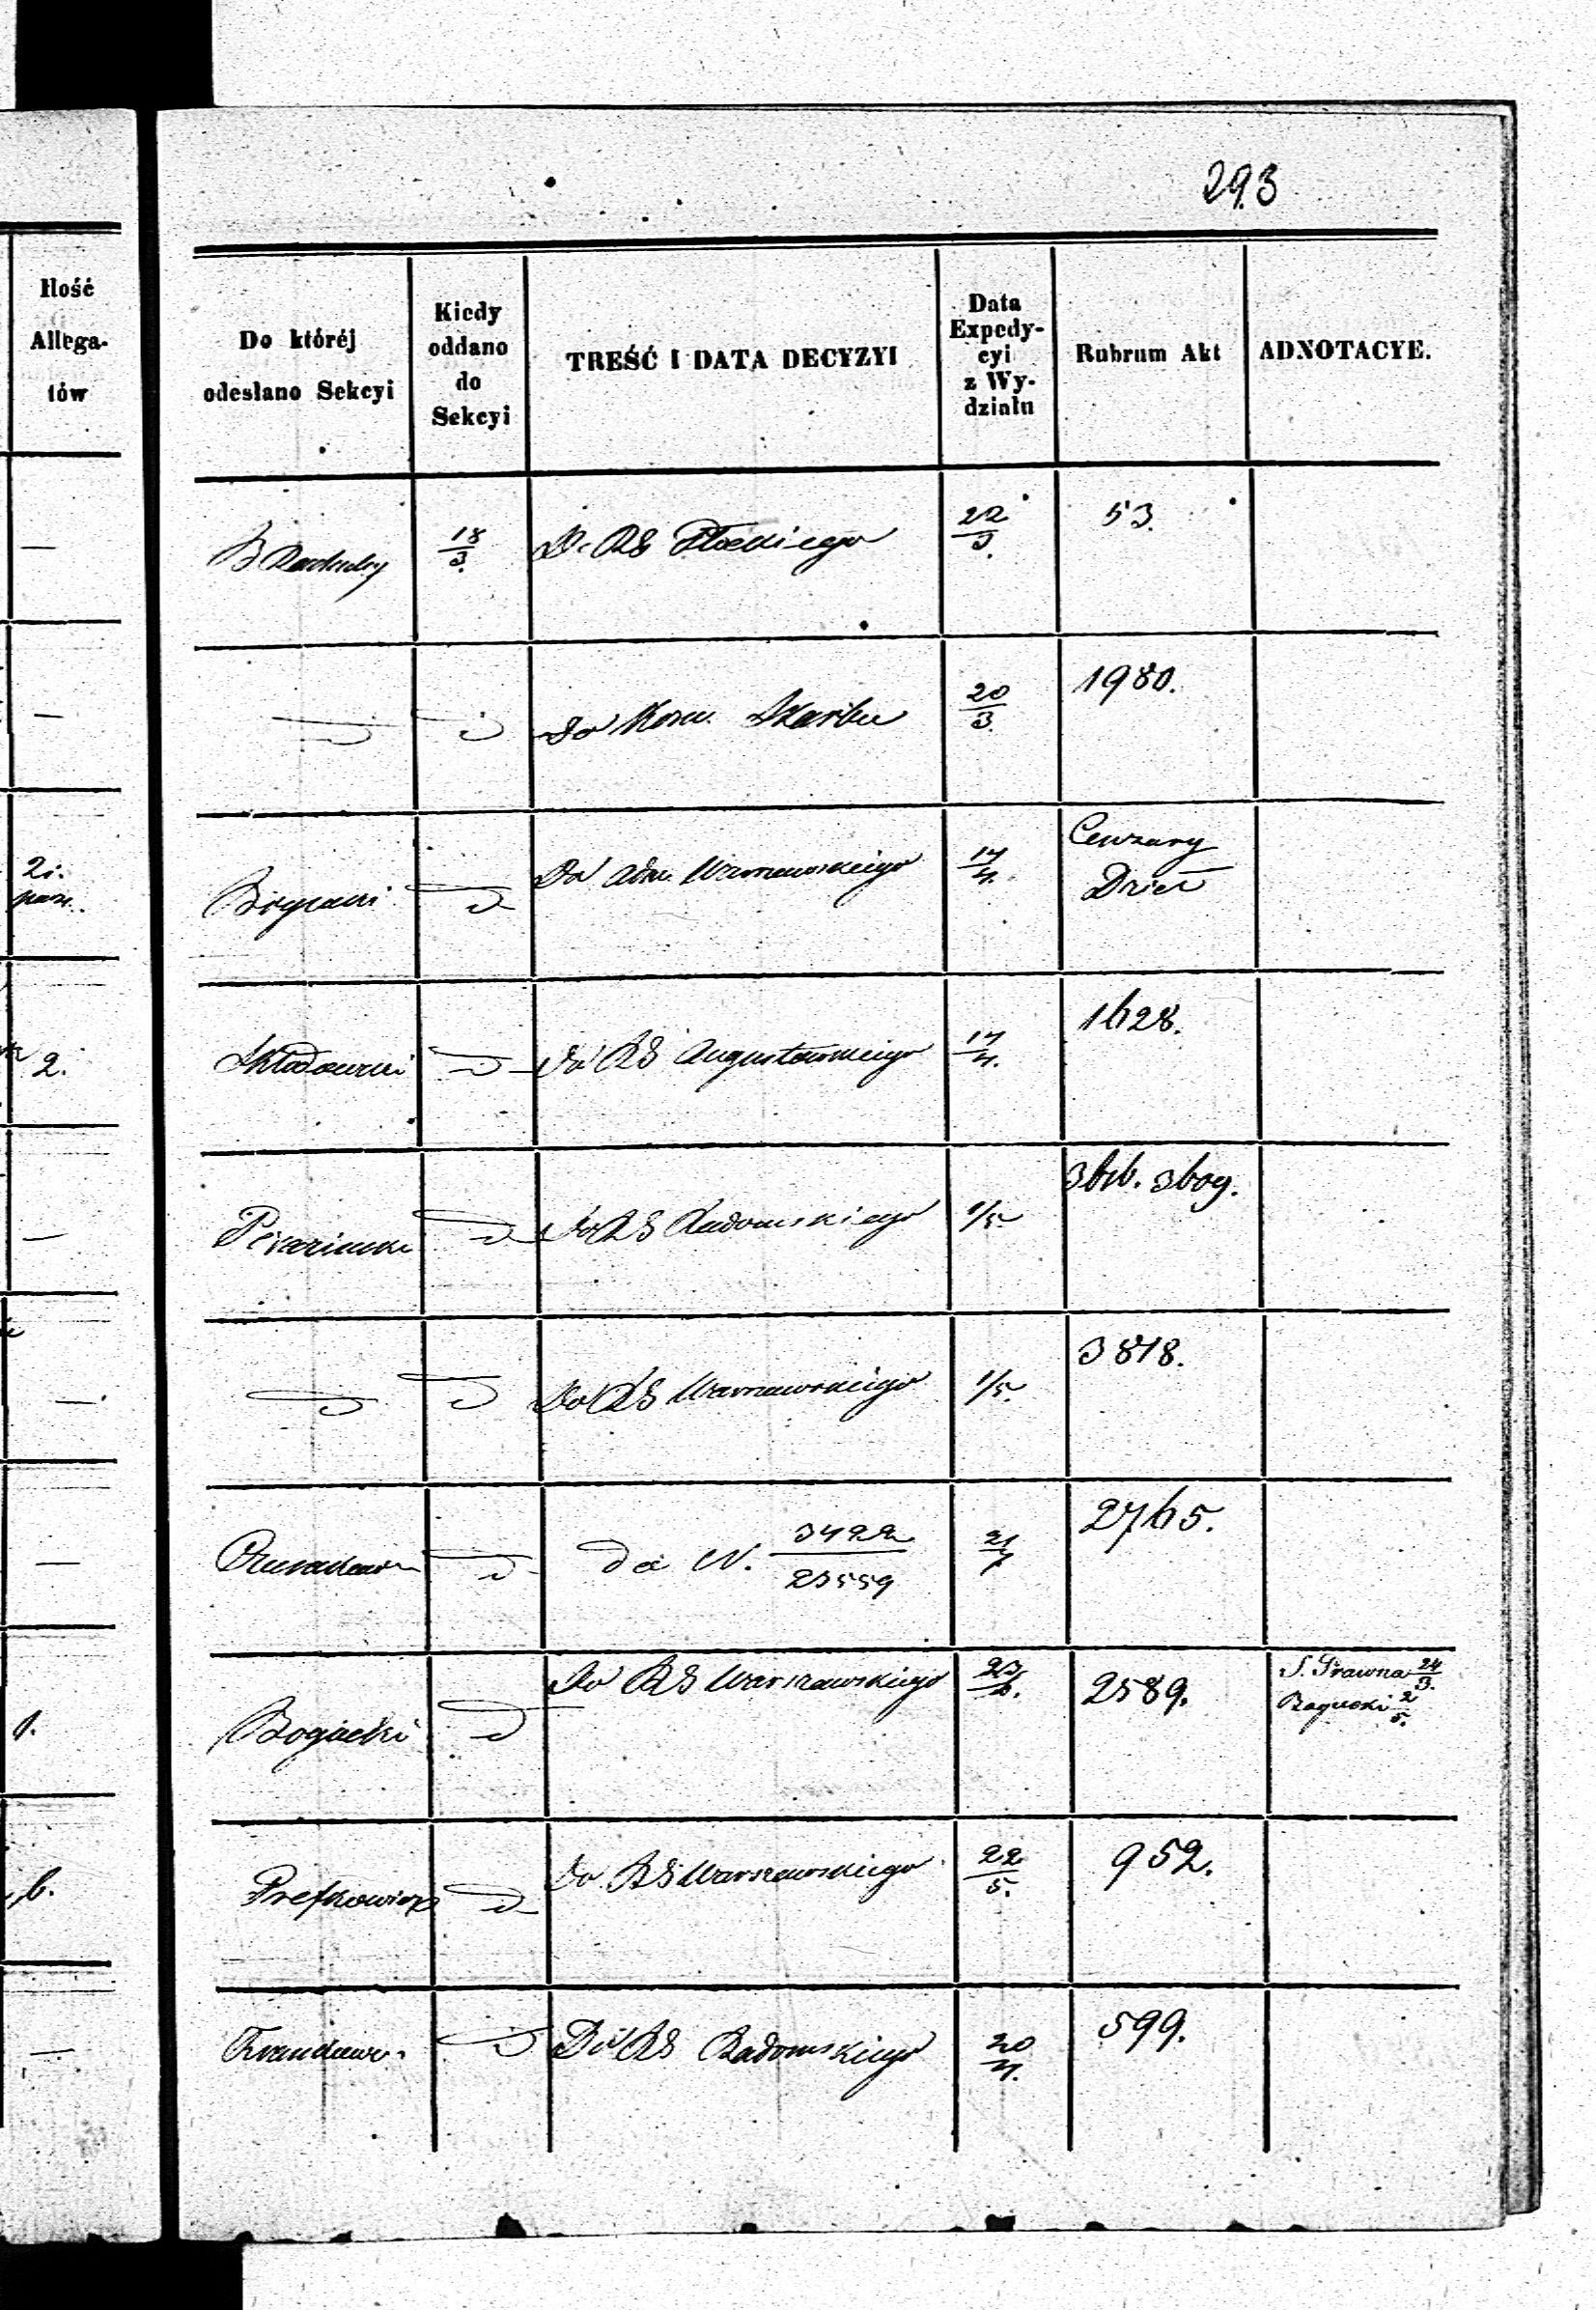 293
Ilość
Allega-
tów
Do któréj
odesłano Sekcyi
Kiedy
oddano
do
Sekcyi
TREŚĆ I DATA DECYZYI
Data
Expedy-
cyi
z Wy-
działu
Rubrum Akt
ADNOTACYE.
—
B 18/3. Do RG Płockiego 22/3. 53.
—
Do Kom. Skarbu 20/3. 1980.
2i.
Do Adm. Warszawskiego 17/4. Cenzury
Dzieł
2.
Do RG Augustowskiego 17/4. 1628.
—
Do RG Radomskiego 1/5
—
Do RG Warszawskiego 1/5. 3818.
—
do N. 3422/23559 21/7 2765.
1.
Bogacki Do RG Warszawskiego 2589. S. Prawna 24/3.
Bogacki 2/5.
6.
Do RG Warszawskiego 22/5. 952.
—
Do RG Radomskiego 20/4. 599.